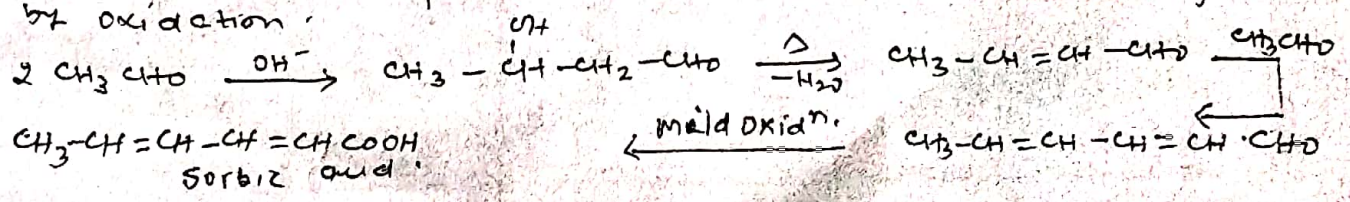 by oxidaction.
OH
2 CH3 CHO OH⁻ → CH3 - CH - CH2 - CHO Δ -H2O → CH3 - CH = CH - CHO CH3CHO
CH3-CH = CH - CH = CH COOH ← mild oxidn. CH3-CH = CH - CH = CH · CHO
Sorbic acid.